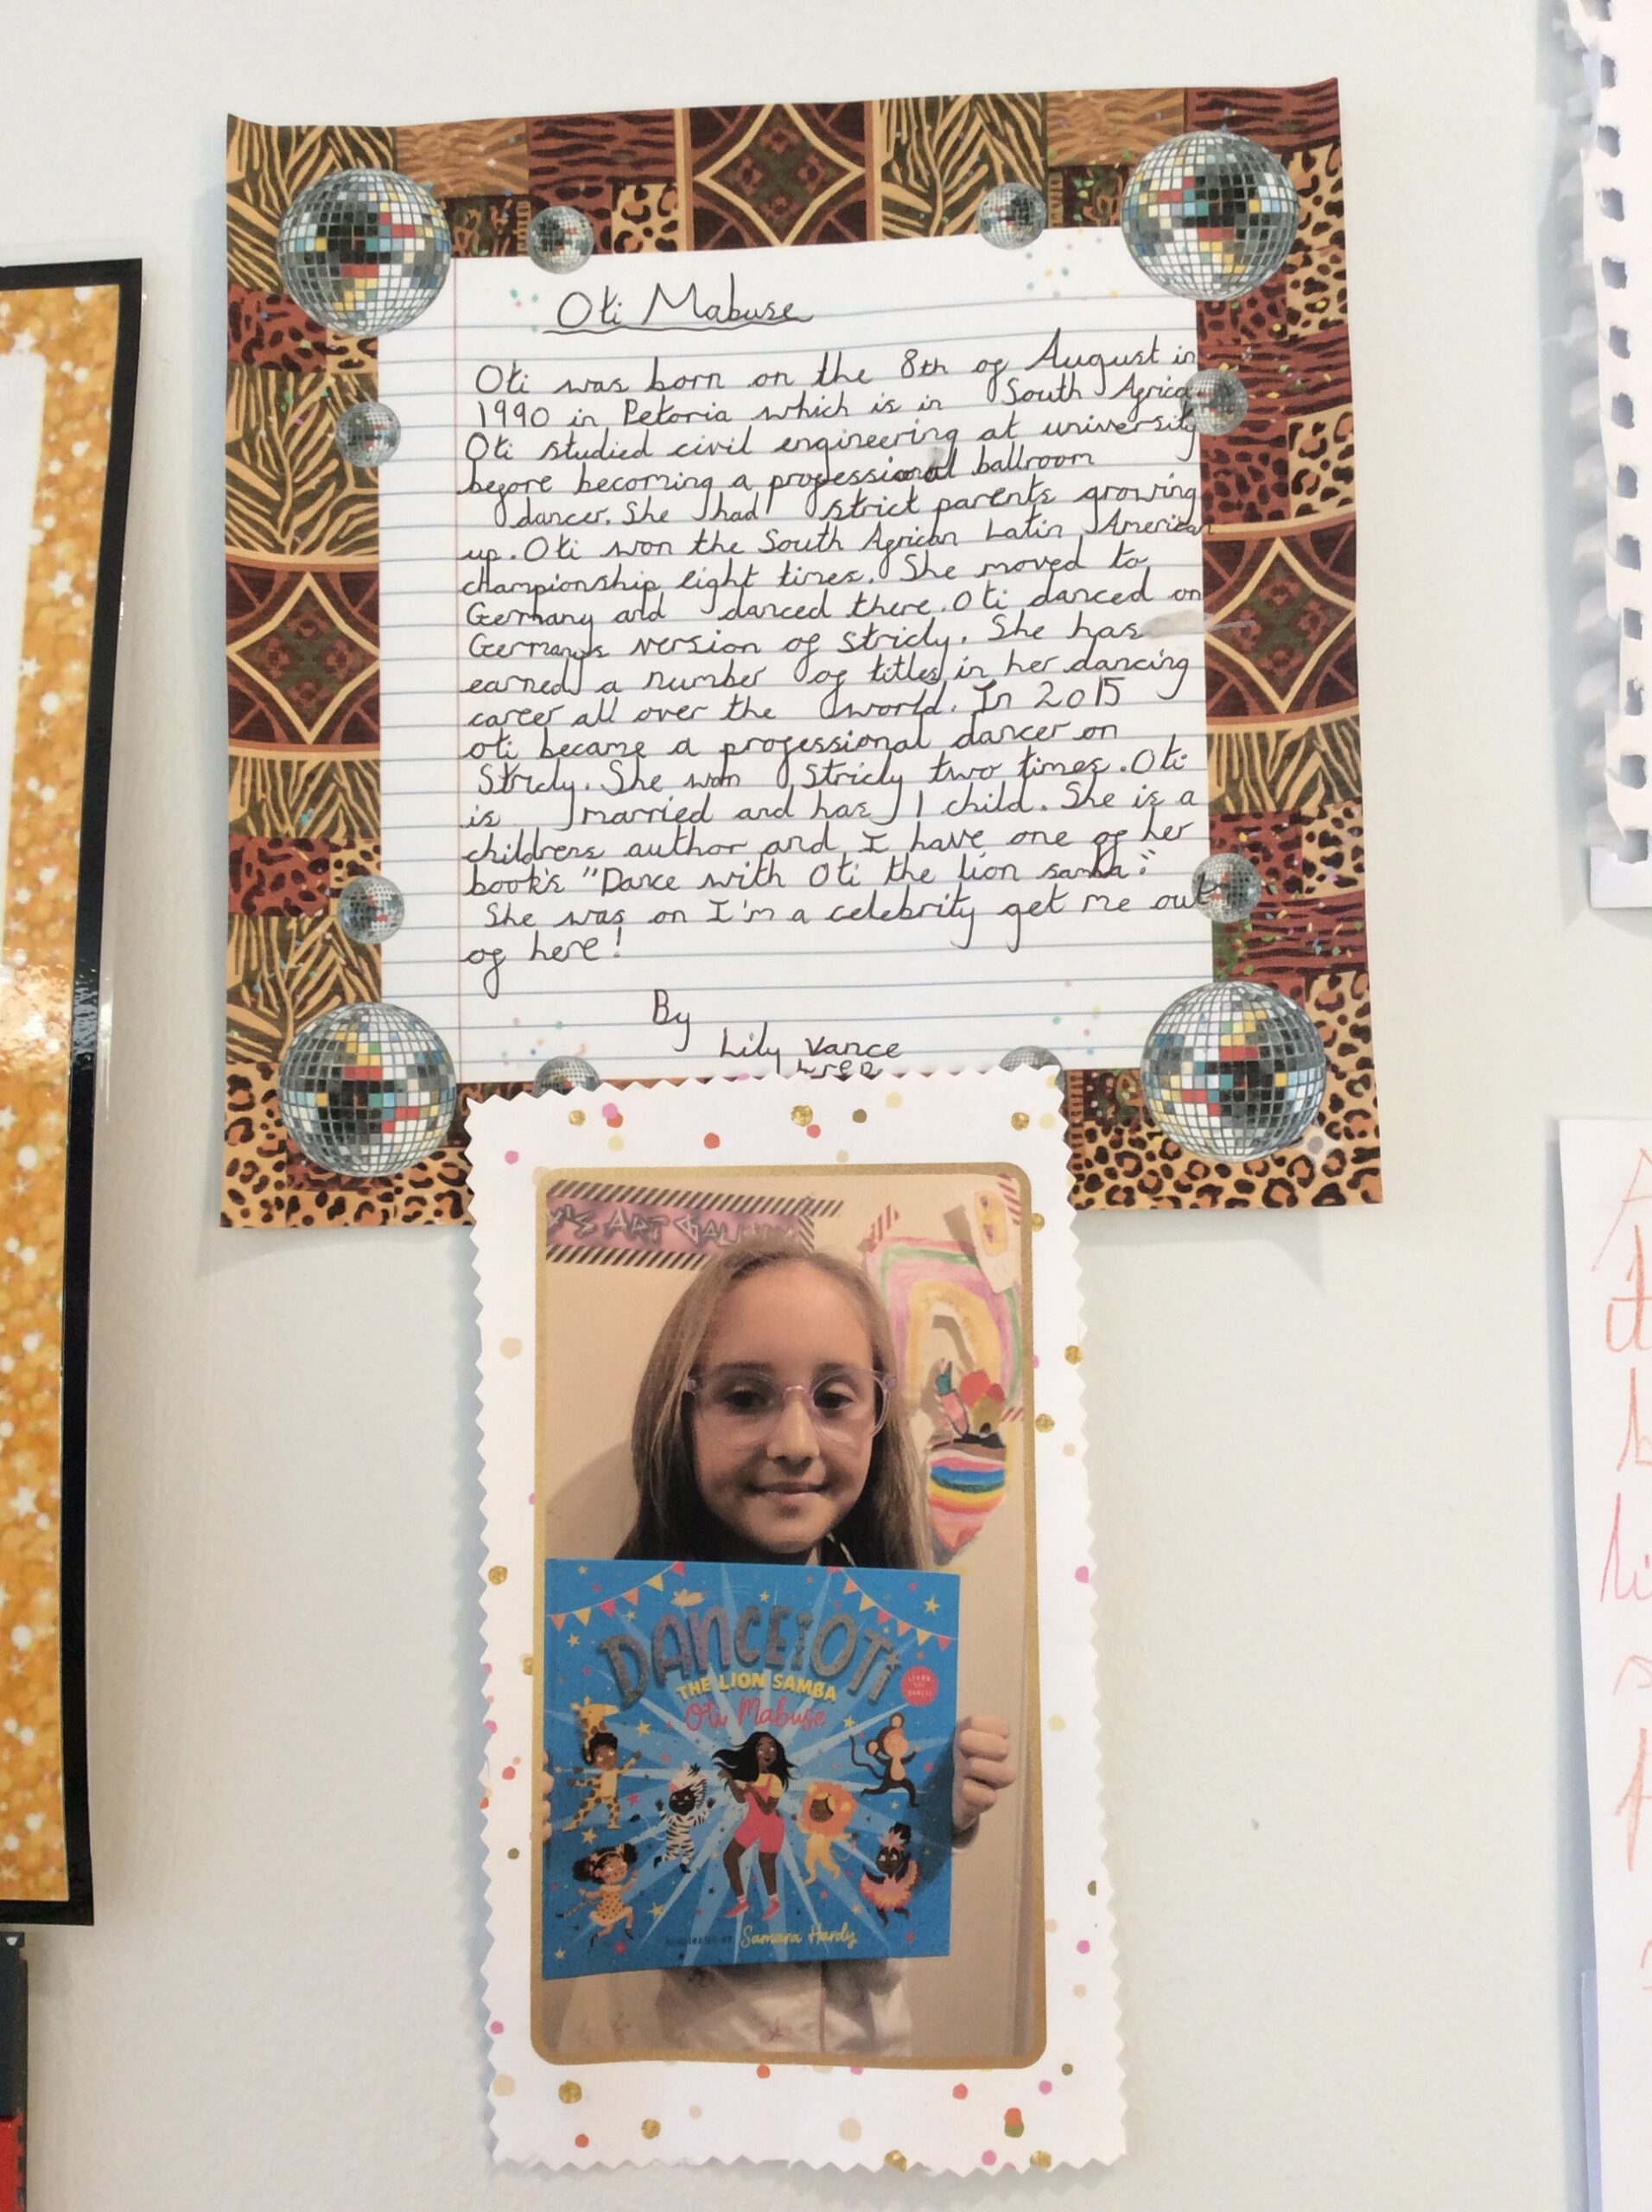 Oti Mabuse
Oti was born on the 8th of August in
1990 in Petoria which is in South Africa
Oti studied civil engineering at university
before becoming a professional ballroom
dancer. She had strict parents growing
up. Oti won the South African Latin American
championship eight times. She moved to
Germany and danced there. Oti danced on
Germany's version of Stricly. She has
earned a number of titles in her dancing
career all over the world. In 2015
oti became a professional dancer on
Stricly. She won Stricly two times. Oti
is married and has 1 child. She is a
childrens author and I have one of her
book's "Dance with Oti the lion samba".
She was on I'm a celebrity get me out
of here!
By
Lily Vance
ART GALLERY
DANCE with OTi
THE LION SAMBA
Oti Mabuse
LEARN THE DANCE!
ILLUSTRATED BY Samara Hardy